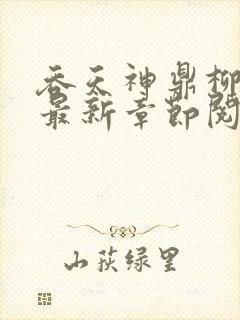 吞天神鼎柳
最新章节阅
山荻绿里